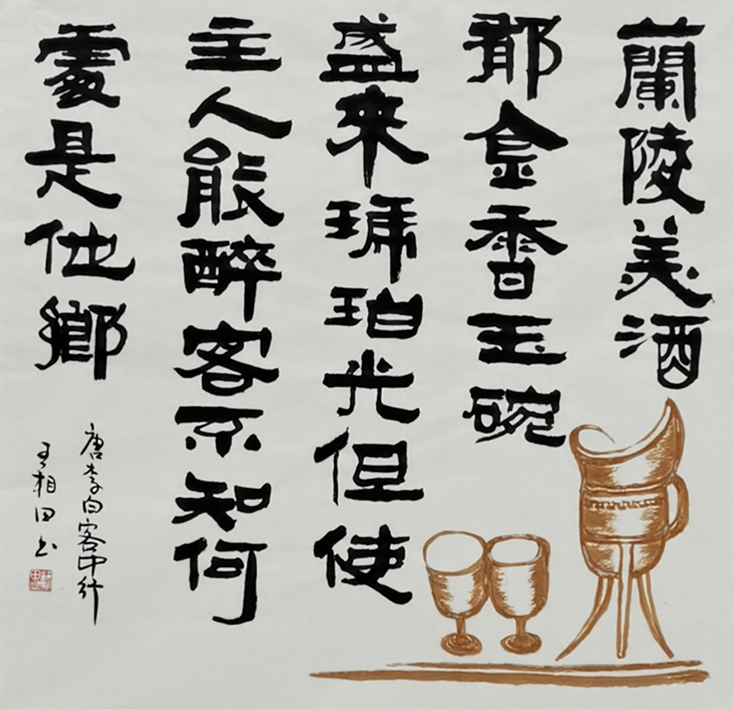 蘭陵美酒
郁金香玉碗
盛來琥珀光但使
主人能醉客不知何
處是他鄉
唐李白客中行
王相田书